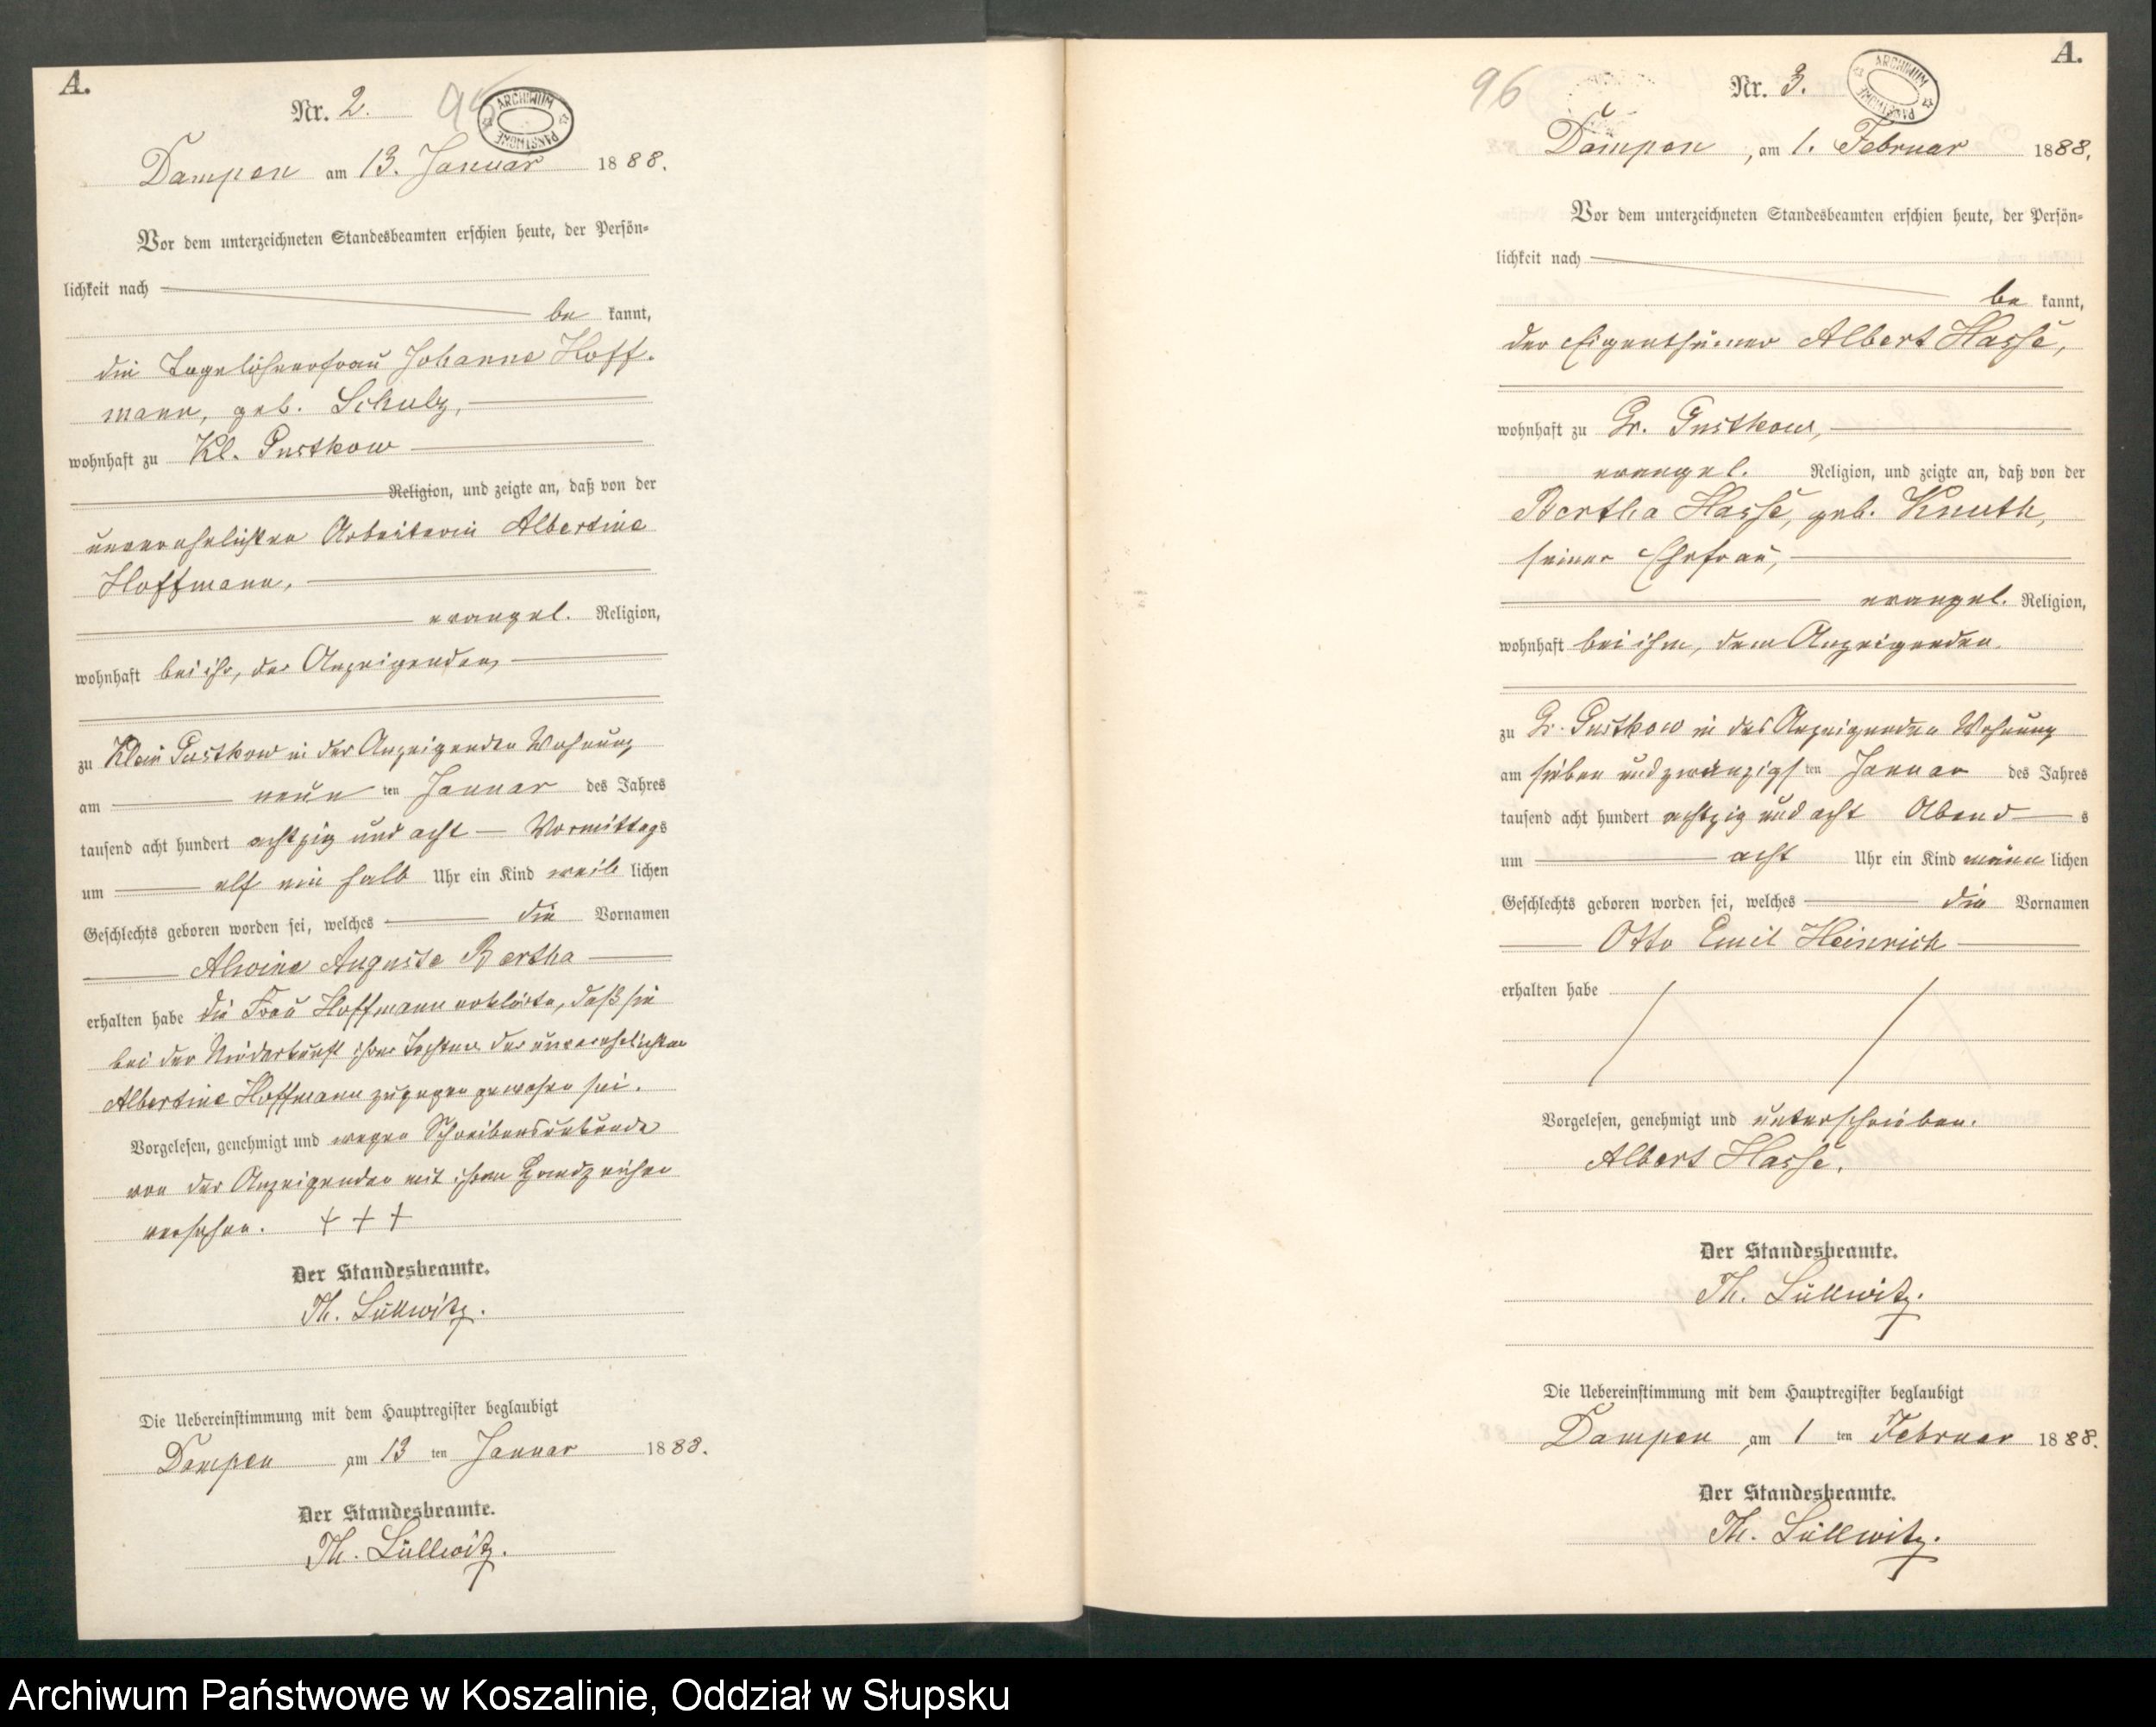 A.
Nr. 2.
95
ARCHIWUM PAŃSTWOWE
Dampen am 13. Januar 1888.
Vor dem unterzeichneten Standesbeamten erschien heute, der Persön-
lichkeit nach
be kannt,
die Tagelöhnerfrau Johanne Hoff-
mann, geb. Schulz,
wohnhaft zu Kl. Pustkow
Religion, und zeigte an, daß von der
unverehelichten Arbeiterin Albertine
Hoffmann,
evangel. Religion,
wohnhaft bei ihr, der Anzeigenden,
zu Klein Pustkow in der Anzeigenden Wohnung
am neun ten Januar des Jahres
tausend acht hundert achtzig und acht Vormittags
um elf ein halb Uhr ein Kind weib lichen
Geschlechts geboren worden sei, welches die Vornamen
Alwine Auguste Bertha
erhalten habe die Frau Hoffmann erklärte, daß sie
bei der Niederkunft ihrer Tochter der unverehelichten
Albertine Hoffmann zugegen gewesen sei.
Vorgelesen, genehmigt und wegen Schreibensunkunde
von der Anzeigenden mit ihren Handzeichen
versehen. + + +
Der Standesbeamte.
Th. Lüllwitz.
Die Uebereinstimmung mit dem Hauptregister beglaubigt
Dampen am 13 ten Januar 1888.
Der Standesbeamte.
Th. Lüllwitz.
A.
96
Nr. 3.
ARCHIWUM PAŃSTWOWE
Dampen, am 1. Februar 1888.
Vor dem unterzeichneten Standesbeamten erschien heute, der Persön-
lichkeit nach
be kannt,
der Eigenthümer Albert Hasse,
wohnhaft zu Gr. Pustkow,
evangel. Religion, und zeigte an, daß von der
Bertha Hasse, geb. Knuth,
seiner Ehefrau,
evangel. Religion,
wohnhaft bei ihm, dem Anzeigenden
zu Gr. Pustkow in des Anzeigenden Wohnung
am sieben und zwanzigs ten Januar des Jahres
tausend acht hundert achtzig und acht Abend s
um acht Uhr ein Kind männ lichen
Geschlechts geboren worden sei, welches die Vornamen
Otto Emil Heinrich
erhalten habe
Vorgelesen, genehmigt und unterschrieben.
Albert Hasse.
Der Standesbeamte.
Th. Lüllwitz.
Die Uebereinstimmung mit dem Hauptregister beglaubigt
Dampen, am 1 ten Februar 1888.
Der Standesbeamte.
Th. Lüllwitz.
Archiwum Państwowe w Koszalinie, Oddział w Słupsku